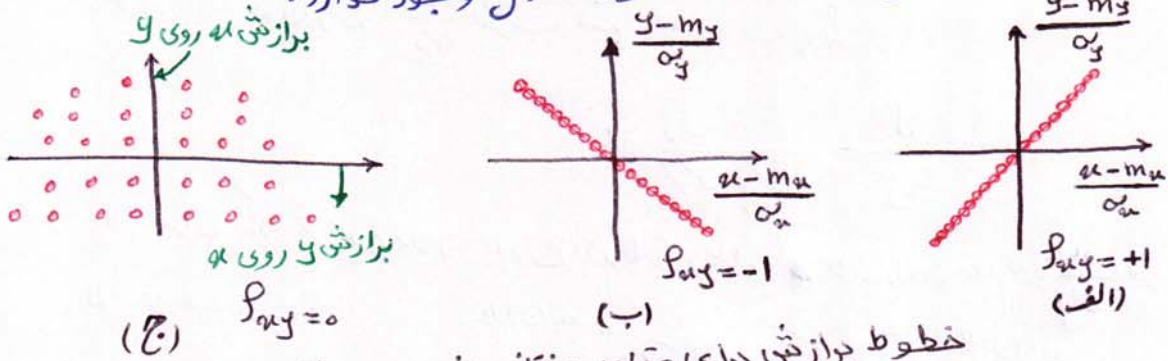 وجود
y-my / σy
x-mx / σx
ρxy=+1
(الف)
y-my / σy
x-mx / σx
ρxy=-1
(ب)
برازش x روی y
برازش y روی x
ρxy=0
(ج)
خطوط برازش برای